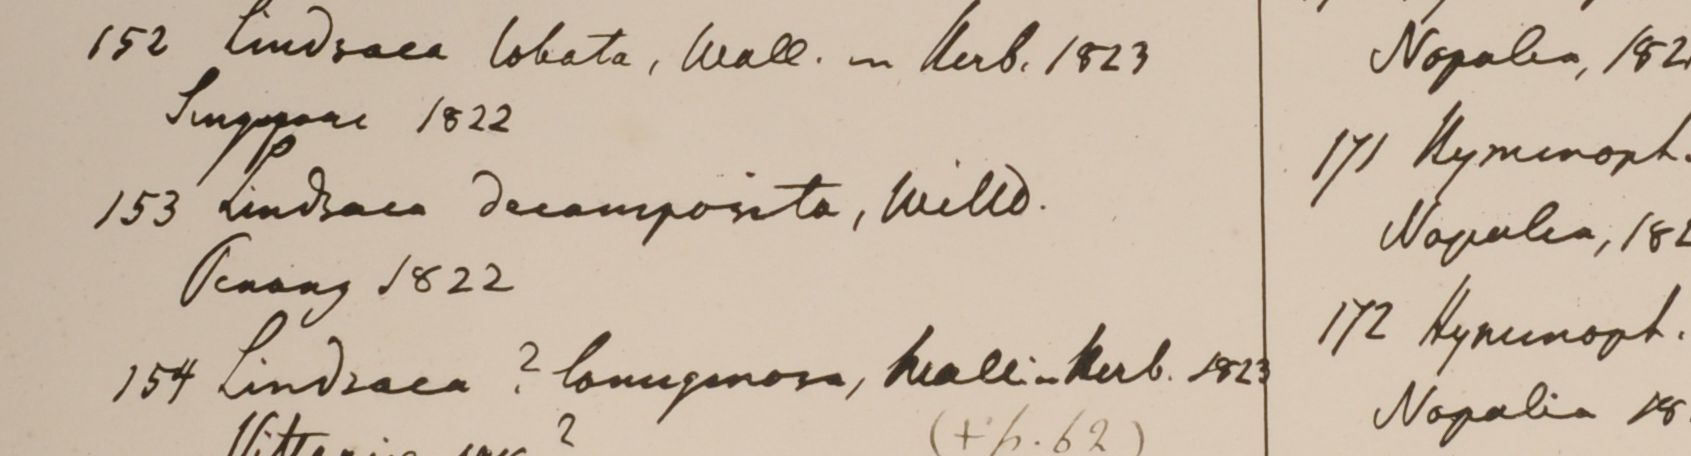 152 Lindsaea lobata, Wall. in Herb. 1823
Singapore 1822
153 Lindsaea decomposita, Willd.
Penang 1822
154 Lindsaea ? lanuginosa, Wall. in Herb. 1823
Vittaria ?
(+ p. 62)
Nopalea, 182
171 Hymenoph.
Nopalea, 182
172 Hymenoph.
Nopalia 18